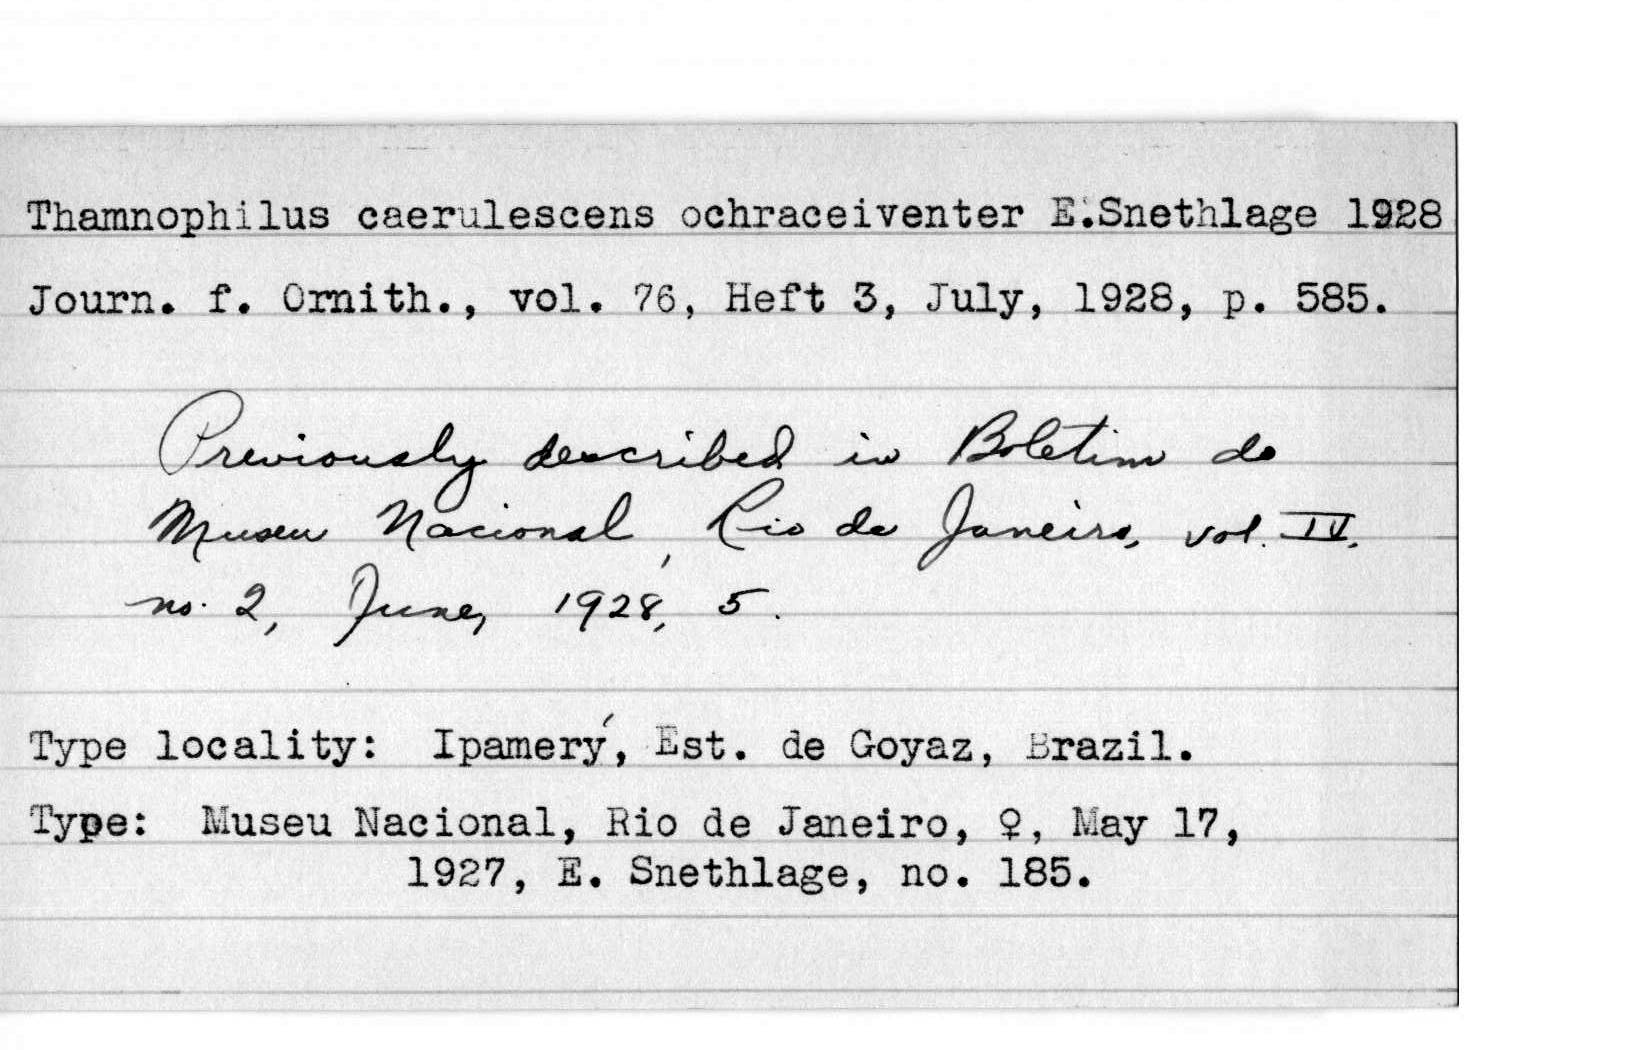 Thamnophilus caerulescens ochraceiventer E.Snethlage 1928
Journ. f. Ornith., vol. 76, Heft 3, July, 1928, p. 585.
Previously described in Boletim do
Museu Nacional, Rio de Janeiro, vol. IV,
no. 2, June, 1928, 5.
Type locality: Ipamerý, Est. de Goyaz, Brazil.
Type: Museu Nacional, Rio de Janeiro, ♀, May 17,
1927, E. Snethlage, no. 185.